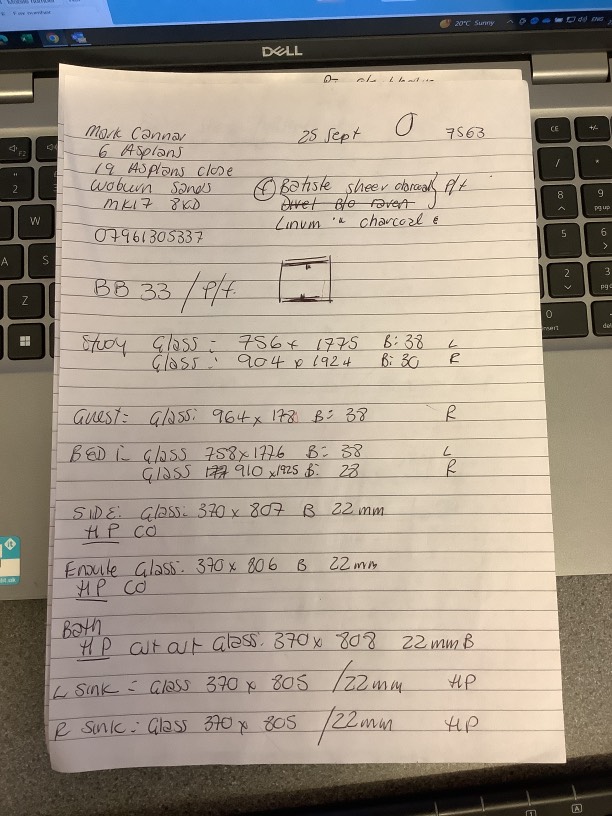 20°C Sunny
DELL
Mark Cannar
25 Sept O 7563
6 Asplans
19 Asplans close
woburn sands
MK17 8KD
(F) Batiste sheer charcoal p/t
Divet B/O raven
Linum charcoal
07961305337
BB 33 / P/f.
Study Glass = 756 x 1775 B: 38 L
Glass: 904 x 1924 B: 30 R
Guest= Glass: 964 x 178 B= 38 R
BED 1= Glass 758 x 1776 B= 38 L
Glass 177 910 x 1925 B: 28 R
SIDE: Glass: 370 x 807 B 22 mm
HP CO
Ensuite Glass: 370 x 806 B 22mm
HP CO
Bath
HP cut out Glass: 370 x 808 22mm B
L SINK = Glass 370 x 805 / 22mm HP
R SINK = Glass 370 x 805 / 22mm HP